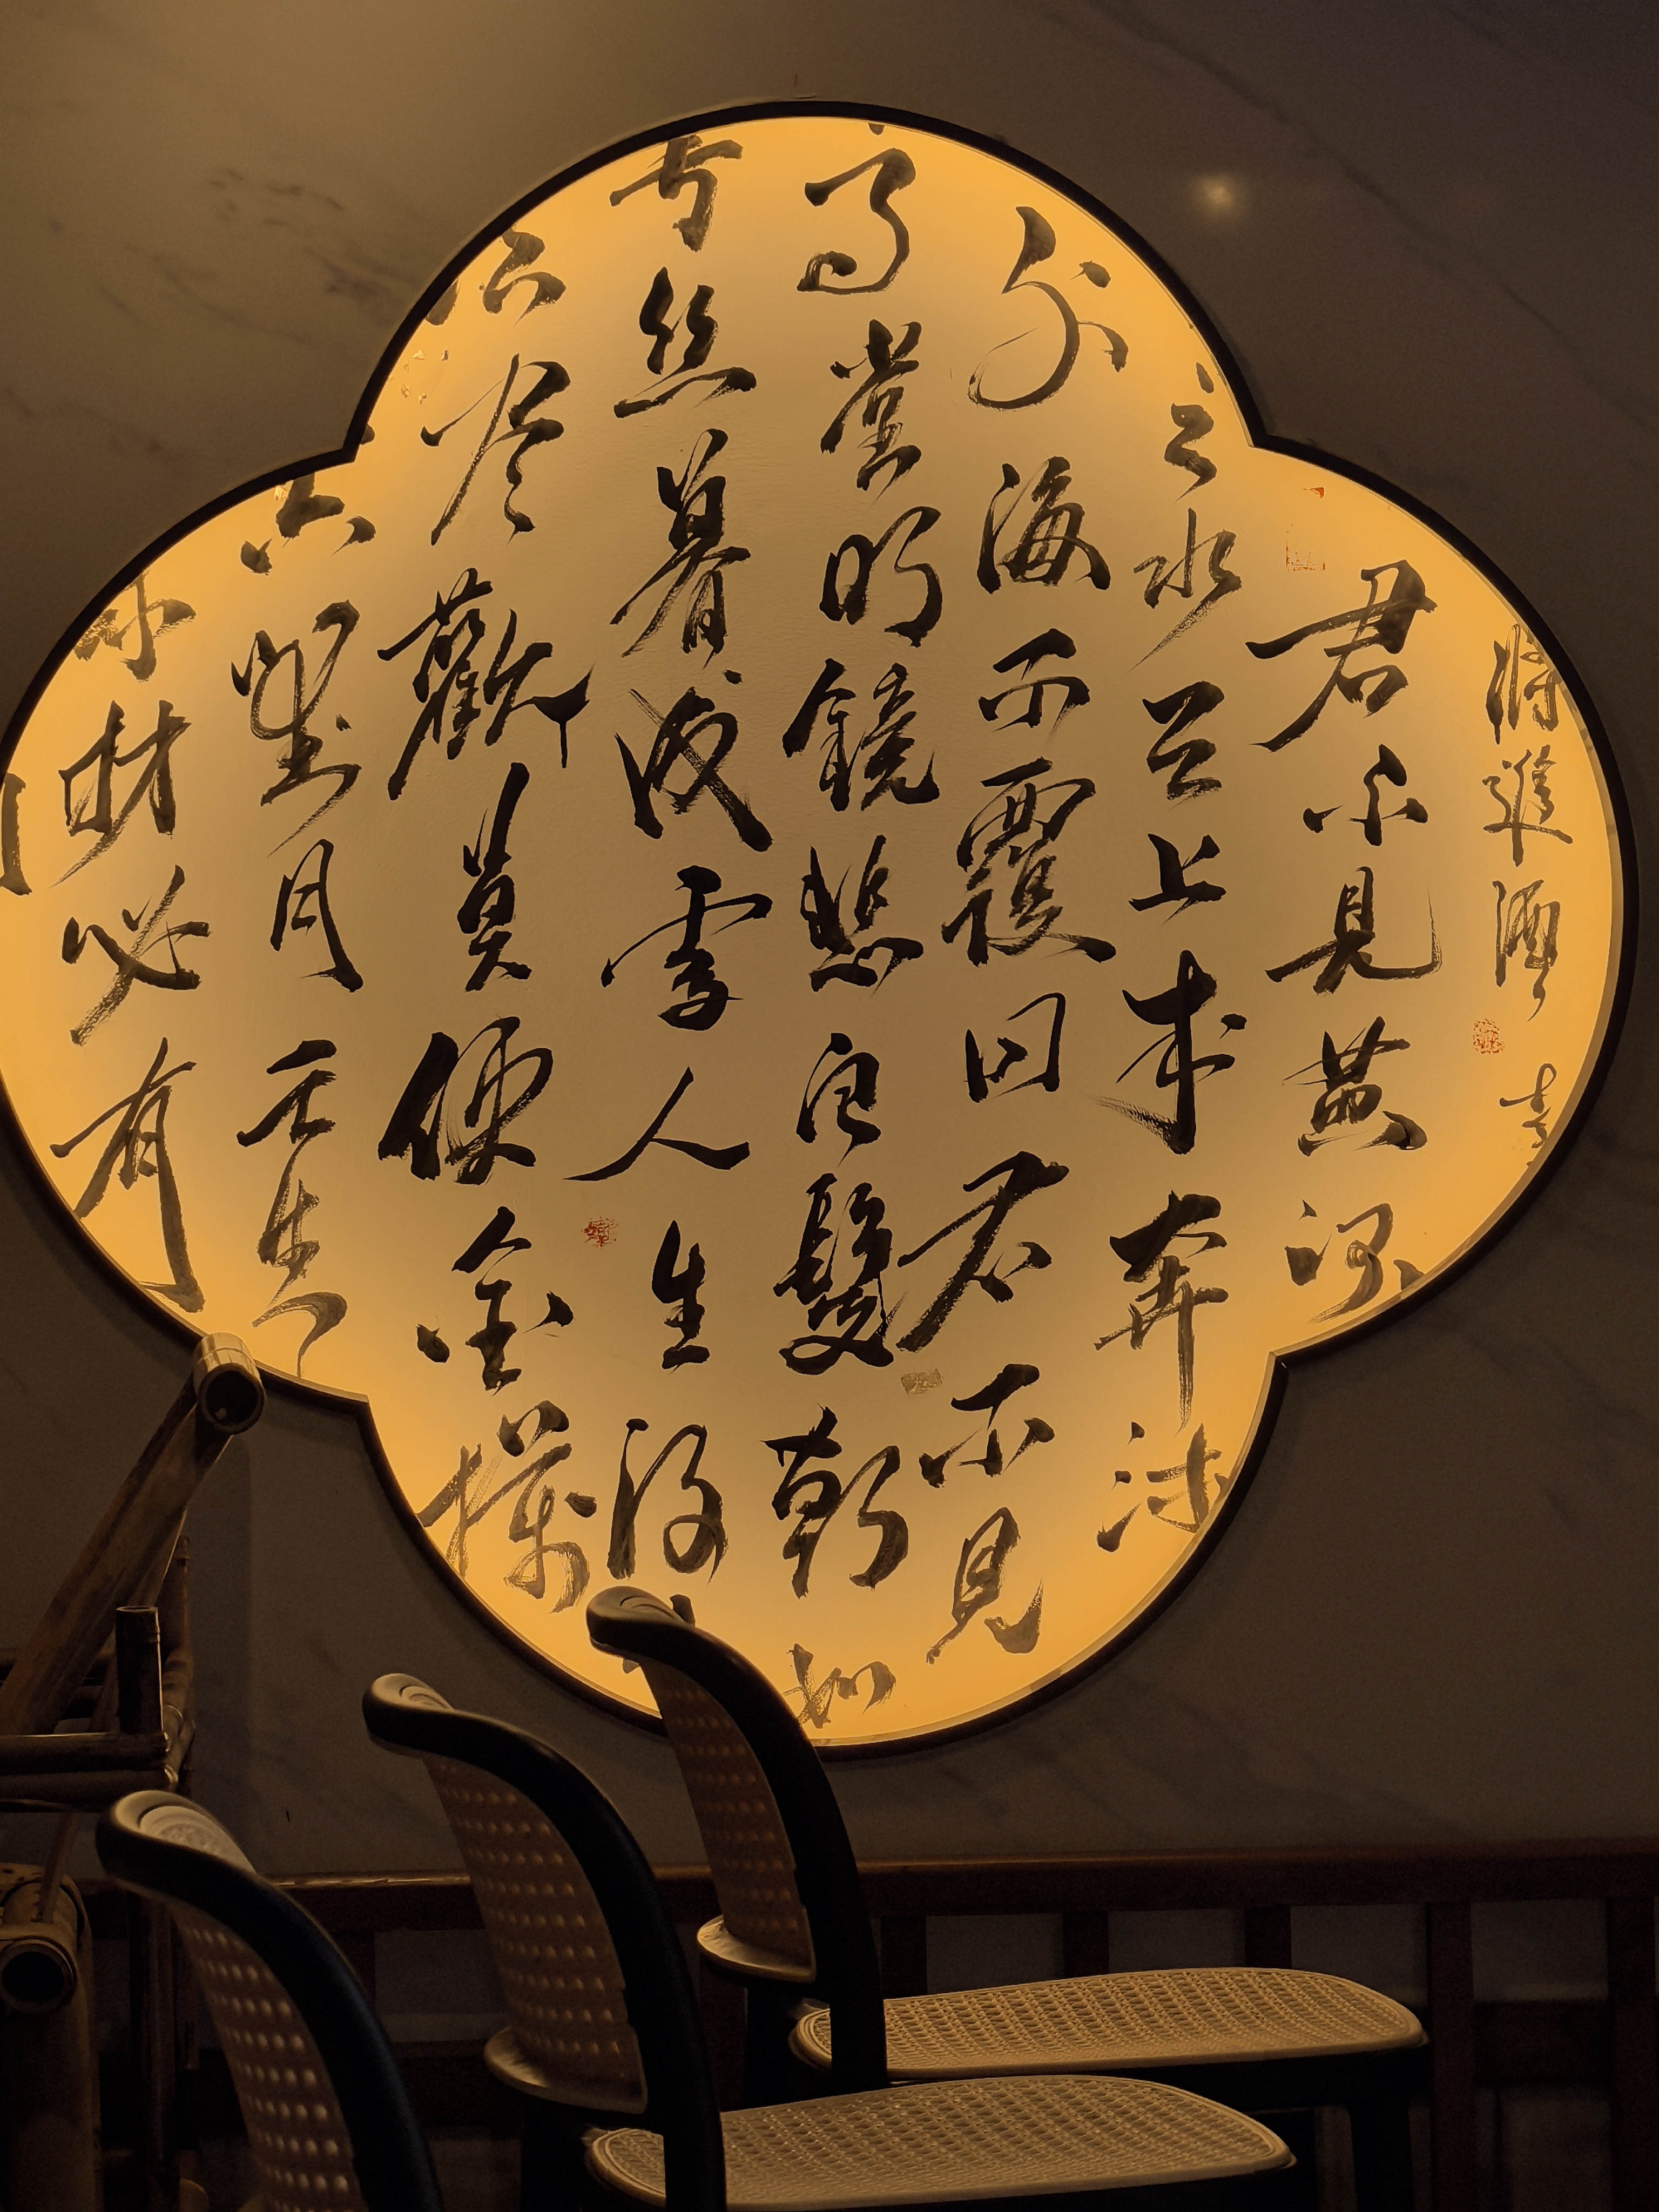 將進酒
君不見黃河
之水天上來奔流
到海不覆回君不見
高堂明鏡悲白髮朝如
青絲暮成雪人生得
尽歡莫使金樽
空對月天生
材必有